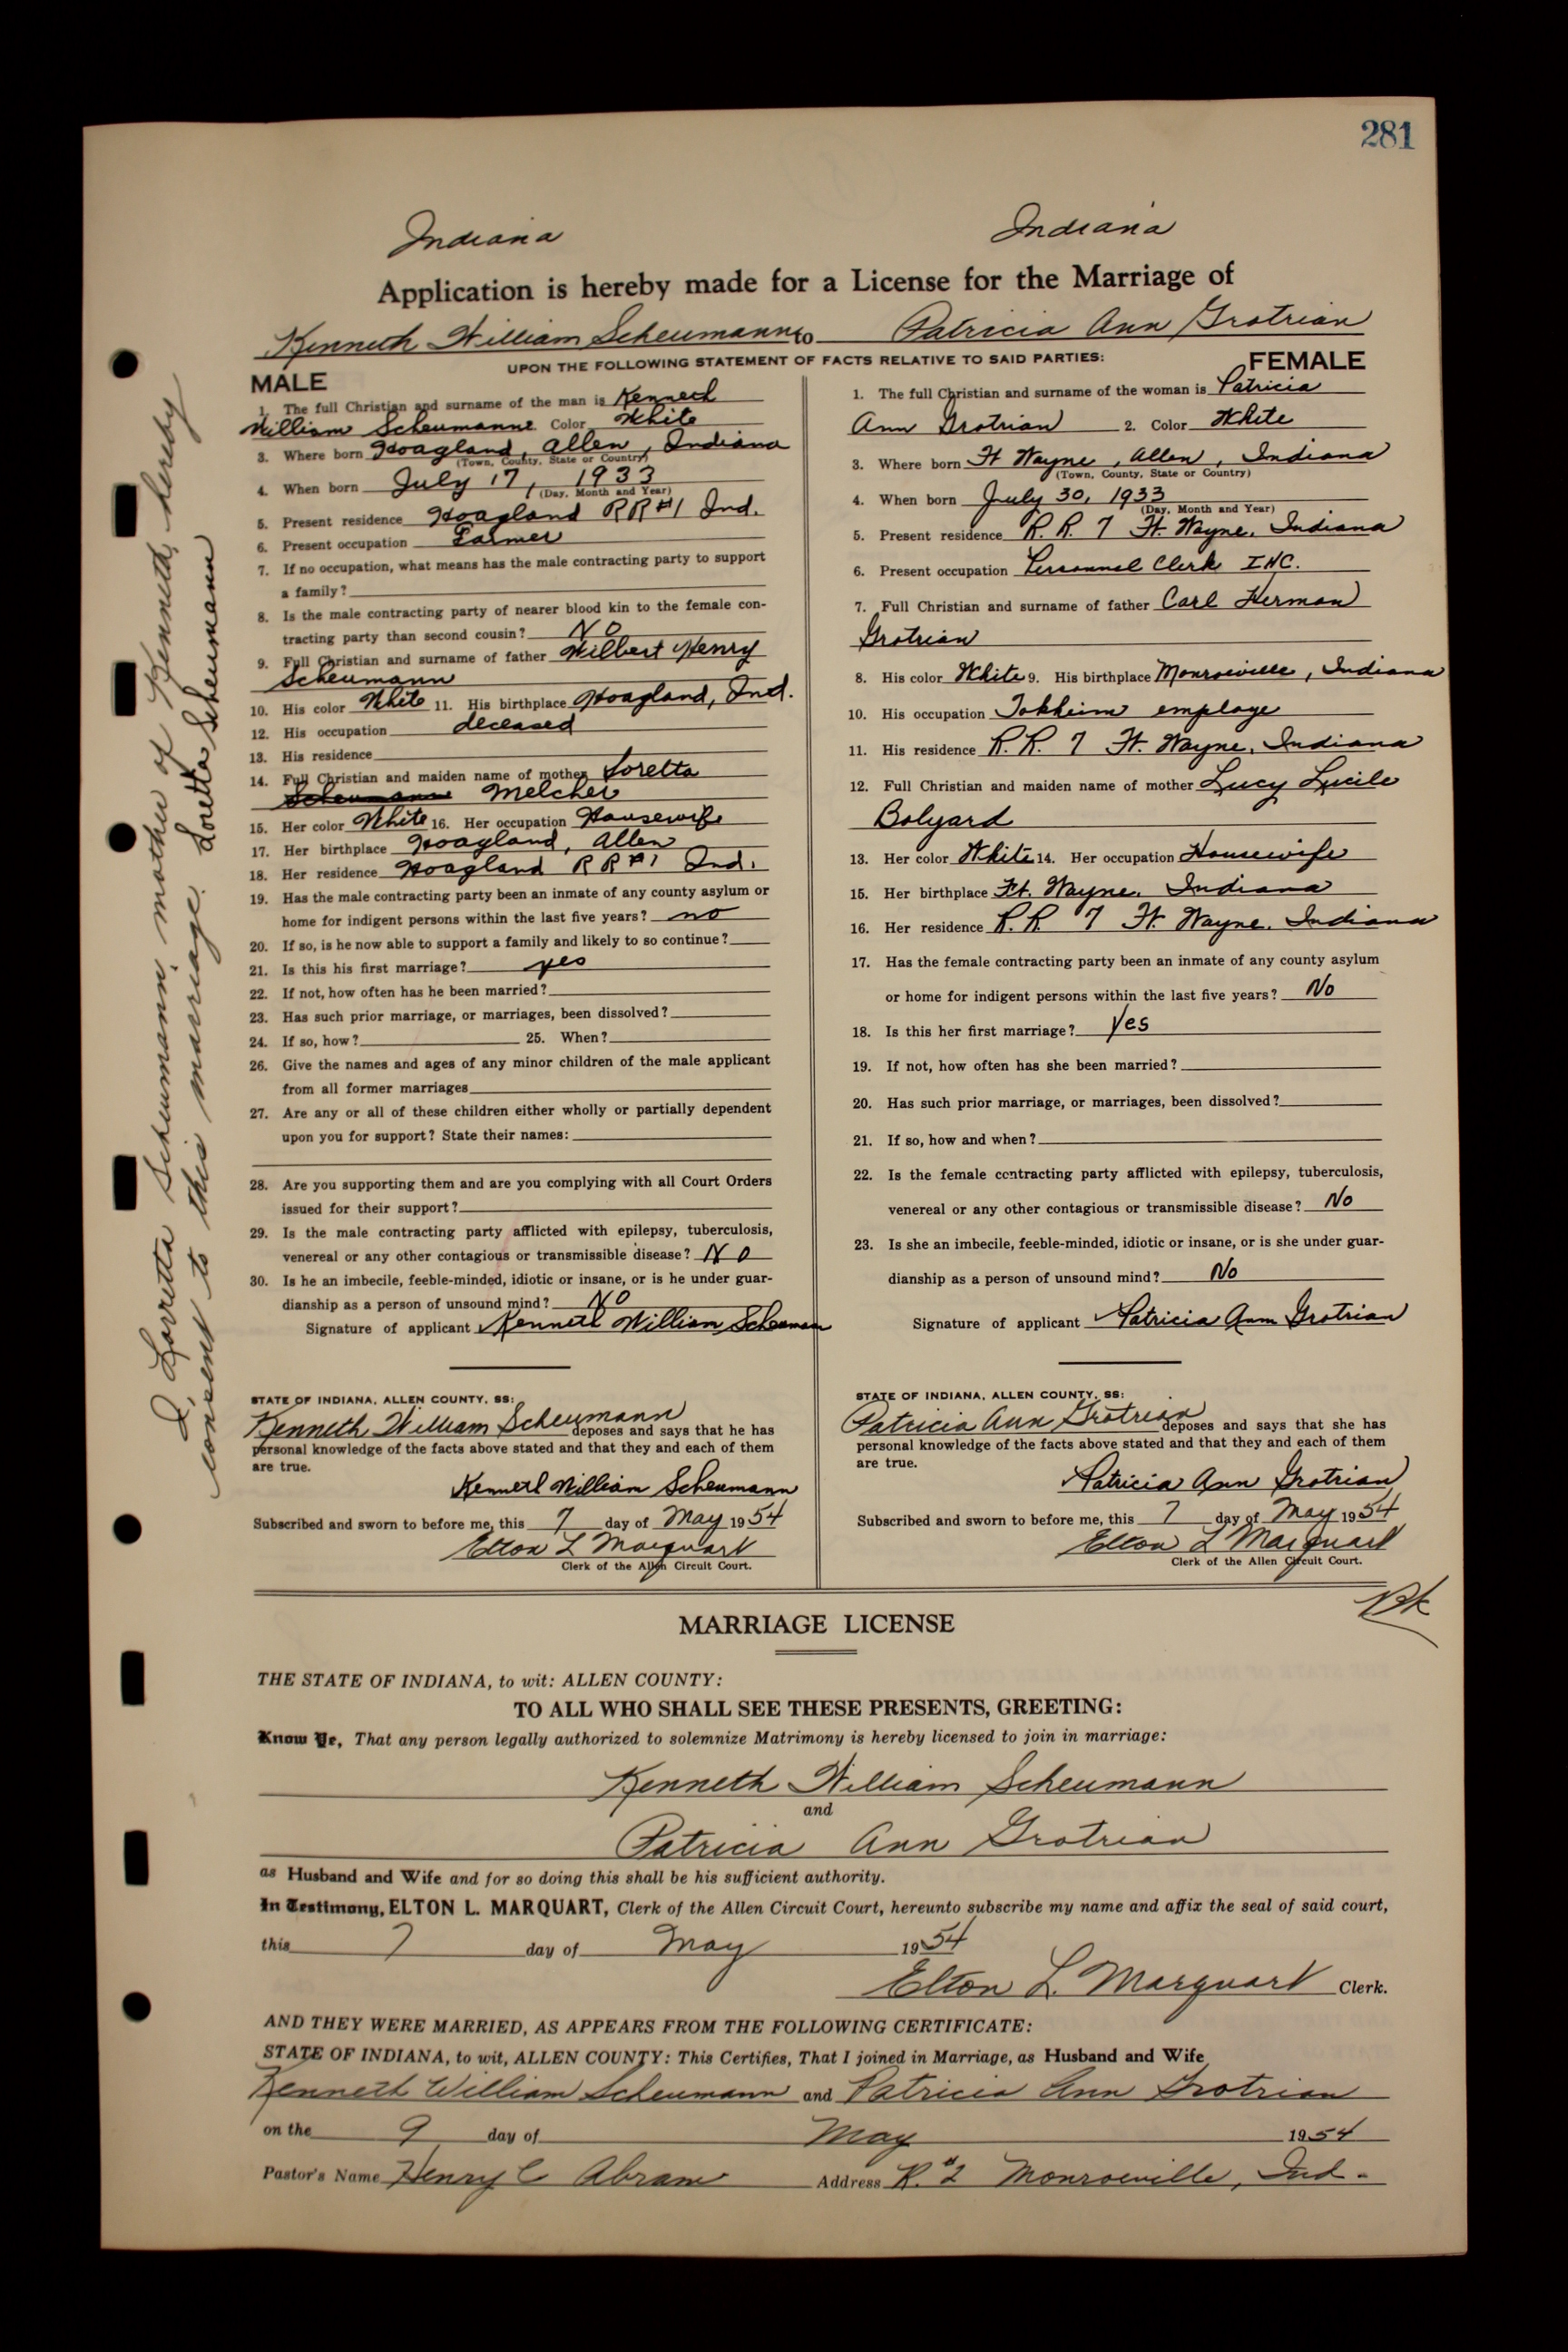 281
Indiana Indiana
Application is hereby made for a License for the Marriage of
Kenneth William Scheumann to Patricia Ann Grotrian
UPON THE FOLLOWING STATEMENT OF FACTS RELATIVE TO SAID PARTIES:
MALE
1. The full Christian and surname of the man is Kenneth
William Scheumann 2. Color White
3. Where born Hoagland, Allen, Indiana
(Town, County, State or Country)
4. When born July 17, 1933
(Day, Month and Year)
5. Present residence Hoagland RR#1 Ind.
6. Present occupation Farmer
7. If no occupation, what means has the male contracting party to support
a family?
8. Is the male contracting party of nearer blood kin to the female con-
tracting party than second cousin? NO
9. Full Christian and surname of father Wilbert Henry
Scheumann
10. His color White 11. His birthplace Hoagland, Ind.
12. His occupation deceased
13. His residence
14. Full Christian and maiden name of mother Loretta
Scheumann Melcher
15. Her color White 16. Her occupation Housewife
17. Her birthplace Hoagland, Allen
18. Her residence Hoagland RR#1 Ind.
19. Has the male contracting party been an inmate of any county asylum or
home for indigent persons within the last five years? no
20. If so, is he now able to support a family and likely to so continue?
21. Is this his first marriage? yes
22. If not, how often has he been married?
23. Has such prior marriage, or marriages, been dissolved?
24. If so, how? 25. When?
26. Give the names and ages of any minor children of the male applicant
from all former marriages
27. Are any or all of these children either wholly or partially dependent
upon you for support? State their names:
28. Are you supporting them and are you complying with all Court Orders
issued for their support?
29. Is the male contracting party afflicted with epilepsy, tuberculosis,
venereal or any other contagious or transmissible disease? NO
30. Is he an imbecile, feeble-minded, idiotic or insane, or is he under guar-
dianship as a person of unsound mind? NO
Signature of applicant Kenneth William Scheumann
STATE OF INDIANA, ALLEN COUNTY, SS:
Kenneth William Scheumann deposes and says that he has
personal knowledge of the facts above stated and that they and each of them
are true.
Kenneth William Scheumann
Subscribed and sworn to before me, this 7 day of May 1954
Elton L Marquart
Clerk of the Allen Circuit Court.
FEMALE
1. The full Christian and surname of the woman is Patricia
Ann Grotrian 2. Color White
3. Where born Ft Wayne, Allen, Indiana
(Town, County, State or Country)
4. When born July 30, 1933
(Day, Month and Year)
5. Present residence R.R. 7 Ft. Wayne, Indiana
6. Present occupation Personnel Clerk IHC.
7. Full Christian and surname of father Carl Herman
Grotrian
8. His color White 9. His birthplace Monroeville, Indiana
10. His occupation Tokheim employe
11. His residence R.R. 7 Ft. Wayne, Indiana
12. Full Christian and maiden name of mother Lucy Lucile
Bolyard
13. Her color White 14. Her occupation Housewife
15. Her birthplace Ft. Wayne, Indiana
16. Her residence R.R 7 Ft. Wayne, Indiana
17. Has the female contracting party been an inmate of any county asylum
or home for indigent persons within the last five years? No
18. Is this her first marriage? Yes
19. If not, how often has she been married?
20. Has such prior marriage, or marriages, been dissolved?
21. If so, how and when?
22. Is the female contracting party afflicted with epilepsy, tuberculosis,
venereal or any other contagious or transmissible disease? No
23. Is she an imbecile, feeble-minded, idiotic or insane, or is she under guar-
dianship as a person of unsound mind? No
Signature of applicant Patricia Ann Grotrian
STATE OF INDIANA, ALLEN COUNTY, SS:
Patricia Ann Grotrian deposes and says that she has
personal knowledge of the facts above stated and that they and each of them
are true.
Patricia Ann Grotrian
Subscribed and sworn to before me, this 7 day of May 1954
Elton L Marquart
Clerk of the Allen Circuit Court.
I Lorretta Scheumann, mother of Kenneth, hereby
consent to this marriage. Loretta Scheumann
MARRIAGE LICENSE
THE STATE OF INDIANA, to wit: ALLEN COUNTY:
TO ALL WHO SHALL SEE THESE PRESENTS, GREETING:
Know Ye, That any person legally authorized to solemnize Matrimony is hereby licensed to join in marriage:
Kenneth William Scheumann
and
Patricia Ann Grotrian
as Husband and Wife and for so doing this shall be his sufficient authority.
In Testimony, ELTON L. MARQUART, Clerk of the Allen Circuit Court, hereunto subscribe my name and affix the seal of said court,
this 7 day of May 1954
Elton L. Marquart Clerk.
AND THEY WERE MARRIED, AS APPEARS FROM THE FOLLOWING CERTIFICATE:
STATE OF INDIANA, to wit, ALLEN COUNTY: This Certifies, That I joined in Marriage, as Husband and Wife
Kenneth William Scheumann and Patricia Ann Grotrian
on the 9 day of May 1954
Pastor's Name Henry C Abram Address R. #2 Monroeville, Ind.